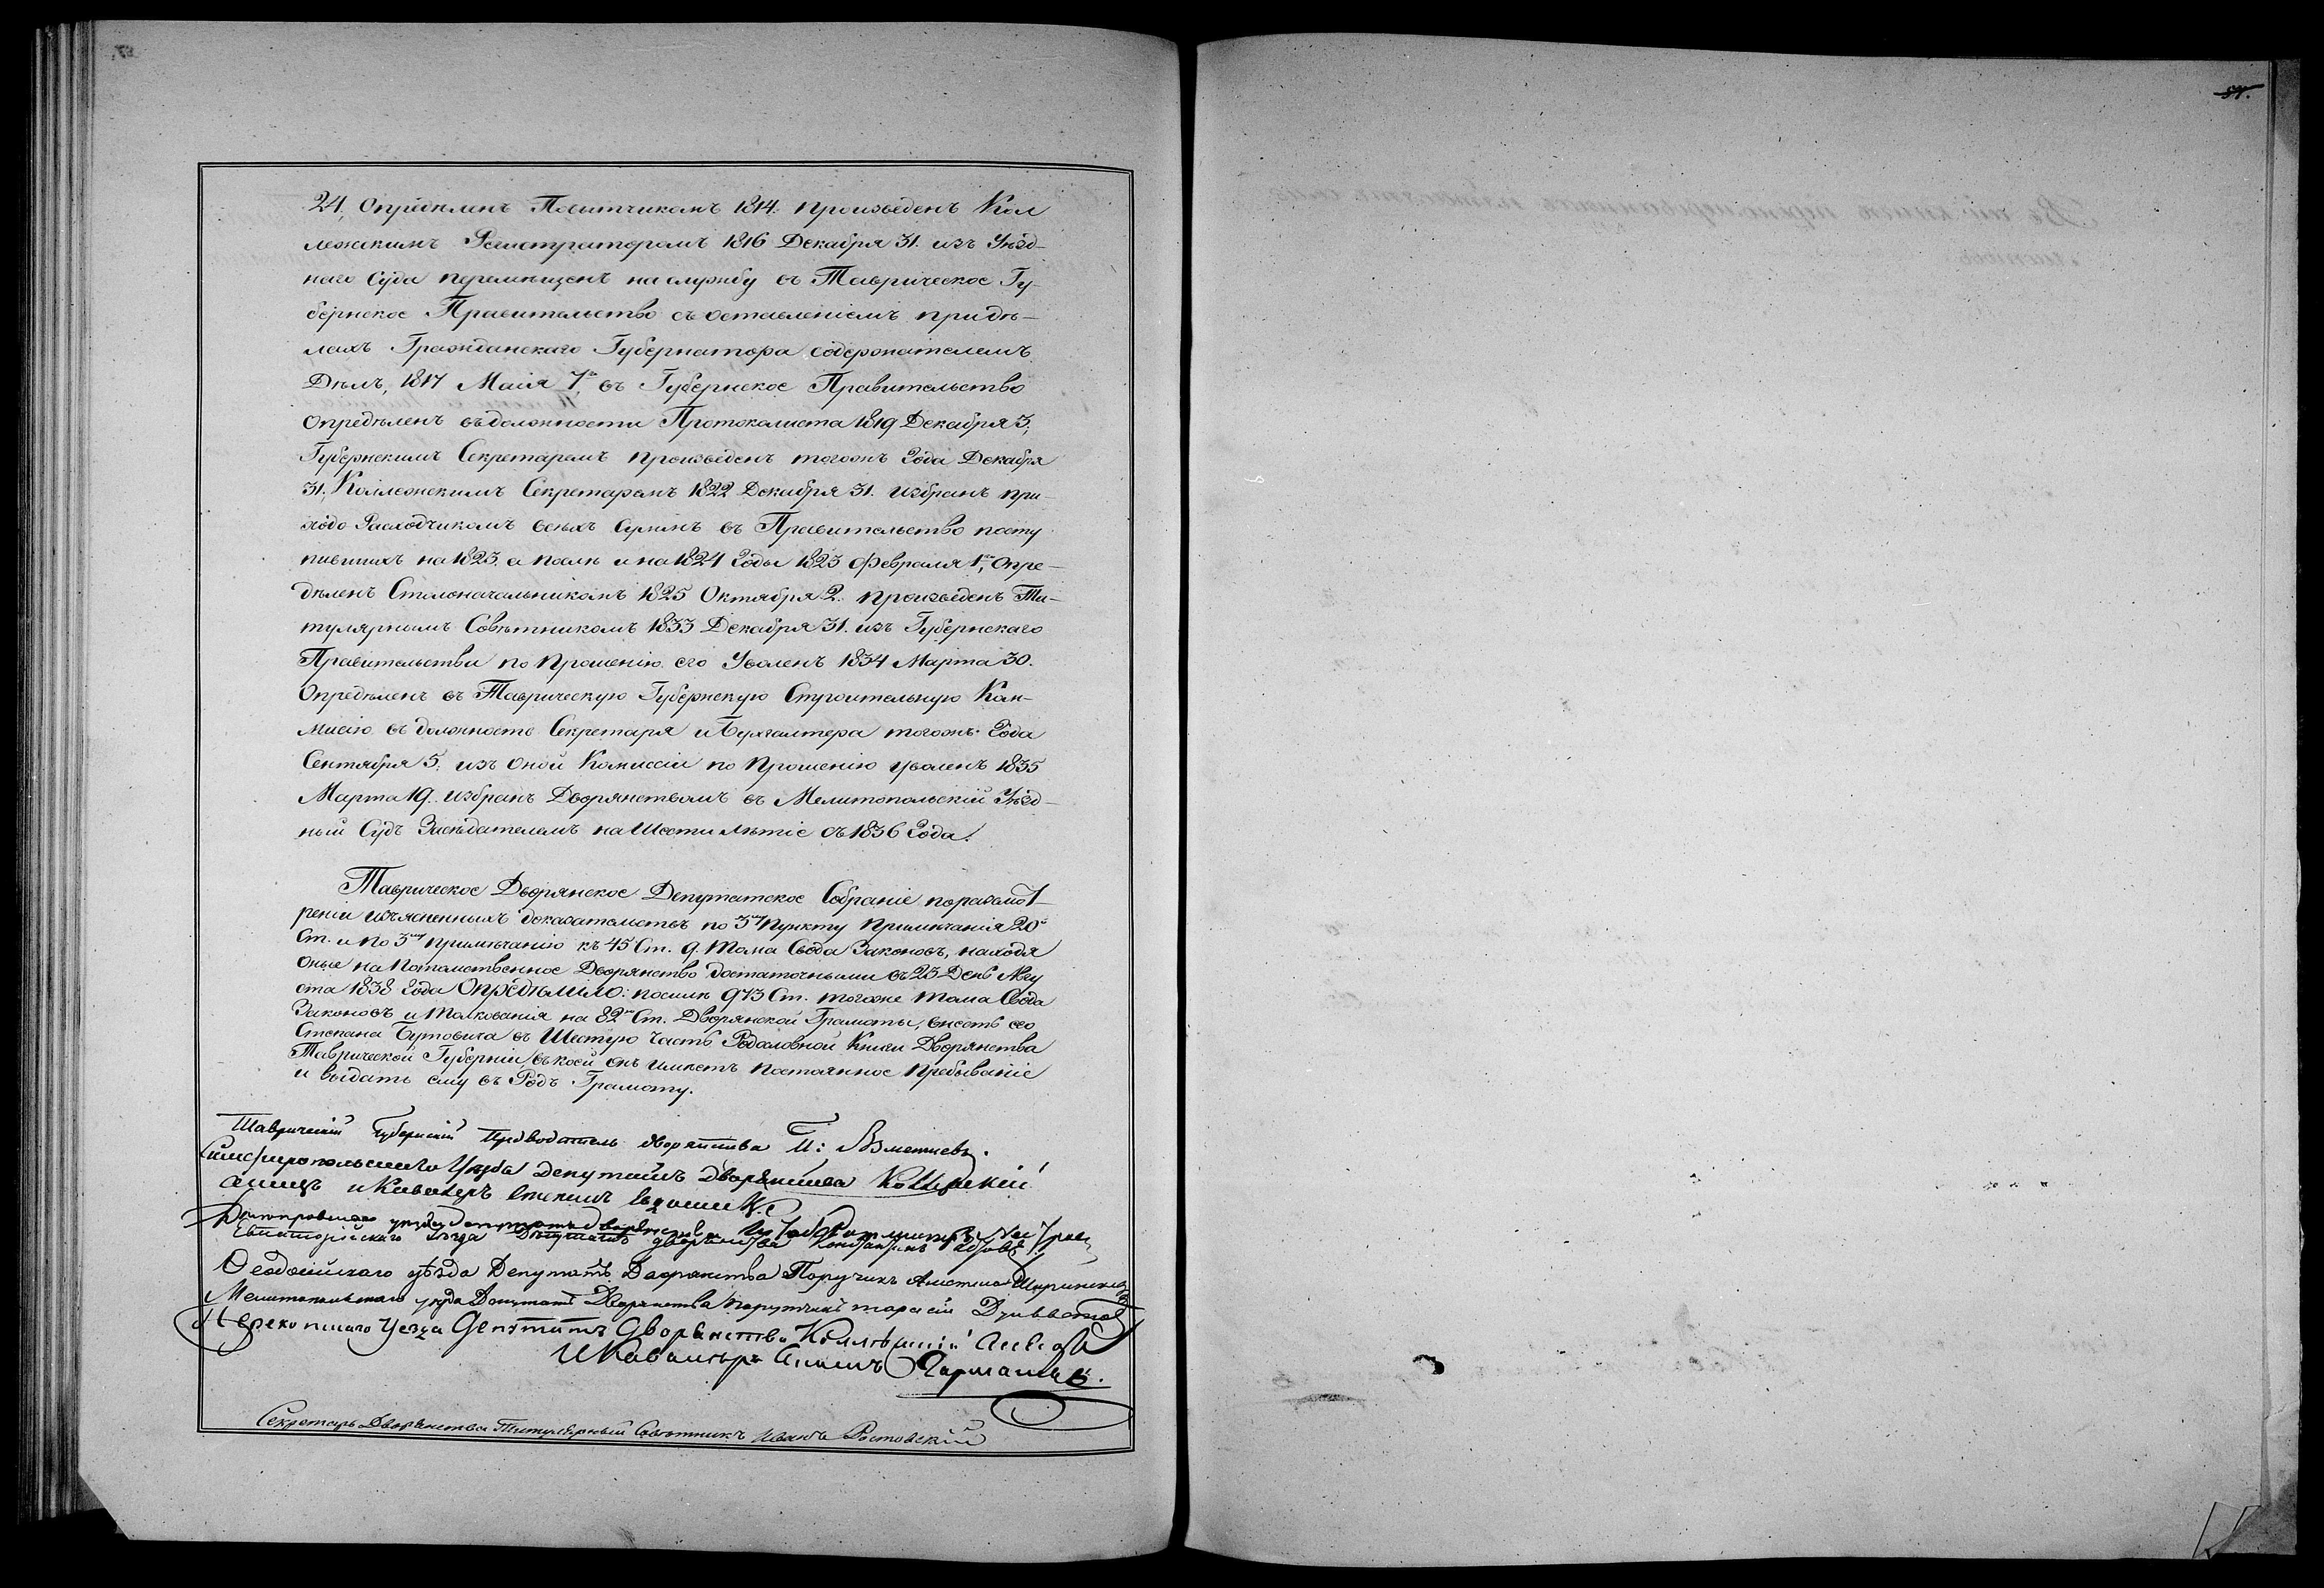 24, Опредѣленъ Повытчикомъ 1814. произведенъ Кол
лежскимъ Регистраторомъ 1816 Декабря 31. изъ Уѣзд-
наго Суда перемѣщенъ на службу въ Таврическое Гу-
бернское Правительство съ оставленіемъ при дѣ-
лахъ Гражданскаго Губернатора содержателемъ
Дѣлъ, 1817 Маія 7го въ Губернское Правительство
опредѣленъ въ должности Протоколиста 1819 Декабря 3,
Губернскимъ Секретаремъ произведенъ тогожъ Года Декабря
31, Коллежскимъ Секретаремъ 1822 Декабря 31. избранъ при-
ходо Расходчикомъ всѣхъ суммъ въ Правительство посту
пившихъ на 1823. а послѣ и на 1824 Годы 1823 Февраля 1го, опре-
дѣленъ Столоначальникомъ 1825 Октября 2. произведенъ Ти-
тулярнымъ Совѣтникомъ 1833 Декабря 31. изъ Губернскаго
Правительства по прошенію его Уволенъ 1834 Марта 30.
Опредѣленъ въ Таврическую Губернскую Строительную Ком-
мисію въ должность Секретаря и Бухгалтера тогожъ Года
Сентября 5. изъ оной Комиссіи по прошенію уволенъ 1835
Марта 19. избранъ Дворянствомъ въ Мелитопольскій Уѣзд-
ный Судъ Засѣдателемъ на Шести лѣтіе съ 1836 Года.
Таврическое Дворянское Депутатское Собраніе по разсмот-
реніи изъясненныхъ доказательствъ по 3му пункту Примѣчанія 20й
Ст. и по 3му примѣчанію къ 45 Ст. 9. Тома Свода Законовъ, находя
оные на Потомственное Дворянство достаточными въ 23 День Авгу
ста 1838 Года Опредѣлило: по силѣ 973 Ст. тогоже тома Свода
Законовъ и Толкованія на 82ю Ст. Дворянской Грамоты, внесть его
Степана Бутовича въ Шестую Часть Родословной Книги Дворянства
Таврической Губерніи въ коей онъ имѣетъ постоянное пребываніе
и выдать ему въ Родъ Грамоту.
Таврическій Губернскій Предводитель дворянства
Симферопольскаго Уѣзда Депутатъ Дворянства
и Кавалеръ
Днепровскаго уезда Депутатъ дворянства
Евпаторійскаго Уѣзда Депутатъ дворянства Константинъ
Феодосійскаго уѣзда Депутатъ Дворянства Поручикъ Аметша Ширинскій
Мелитопольскаго уезда Депутатъ Дворянства порутчикъ
Перекопскаго Уезда Депутатъ Дворянства
И Кавалеръ
Секретарь Дворянства Титулярный Совѣтникъ Иванъ Ростовскій